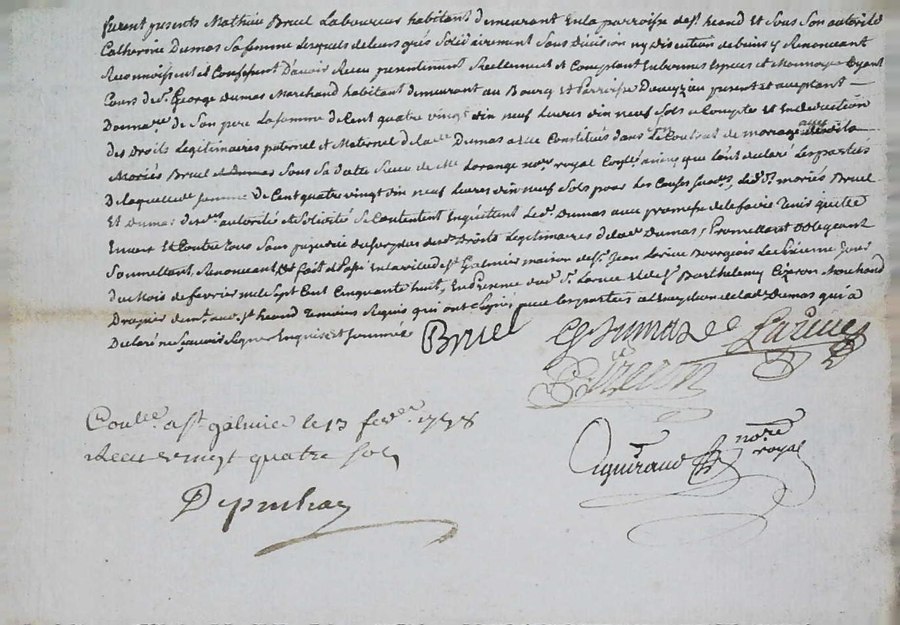 furent presents Mathieu Bruel Laboureur habitant demeurant En la parroisse de st heand Et Sous Son autorité
Catherine Dumas Sa femme Lesquels de leurs grés Solidairement Sans Division ny discution de biens y Renonceant
Reconnoissent et Confessent D'avoir Receu presentement Reellement et Comptant En bonnes Especes et Monnoye Ayant
Cours de sr. George Dumas Marchand habitant demeurant au Bourg Et Parroisse present et aceptant
De Son pere La somme de Cent quatre vingt dix neuf Livres dix neuf Sols a Compte et En deduction
des Droits Legitimaires paternel et Maternel de lade Dumas a Elle Constitués dans Le Contrat de mariage
Mariés Bruel et Dumas Sous Sa datte Receu de Me Lorange nore. royal ainsy que l'ont declaré Les parties
De laquelle de. somme de Cent quatre vingt dix neuf Livres dix neuf Sols pour Les Causes Les ds. mariés Bruel
Et Dumas autorité et Solidité Se Contentent En quittent Led. Dumas avec promesse de le faire tenir quitte
Envers Et Contre tous Sans prejudice du Surplus des Droits Legitimaires de lade Dumas, Promettant obligeant
Soumettant, Renonceant, fait et Passé En la ville de st Galmier maison de sr. Jean Larive Bourgeois Le
du Mois de fevrier mil Sept Cent Cinquante huit, En presence dud. Sr. Larive Et de Sr Barthelemy Cizeron Marchand
Drapier st heand Temoins Requis qui ont Signé avec Les parties a L'exception de lade Dumas qui a
Declaré ne Sçavoir Signer Enquise et Sommée
Bruel G Dumas Larive
Cizeron
Conlé. a st galmier le 13 fever. 1758
Receu vingt quatre sols
nore royal